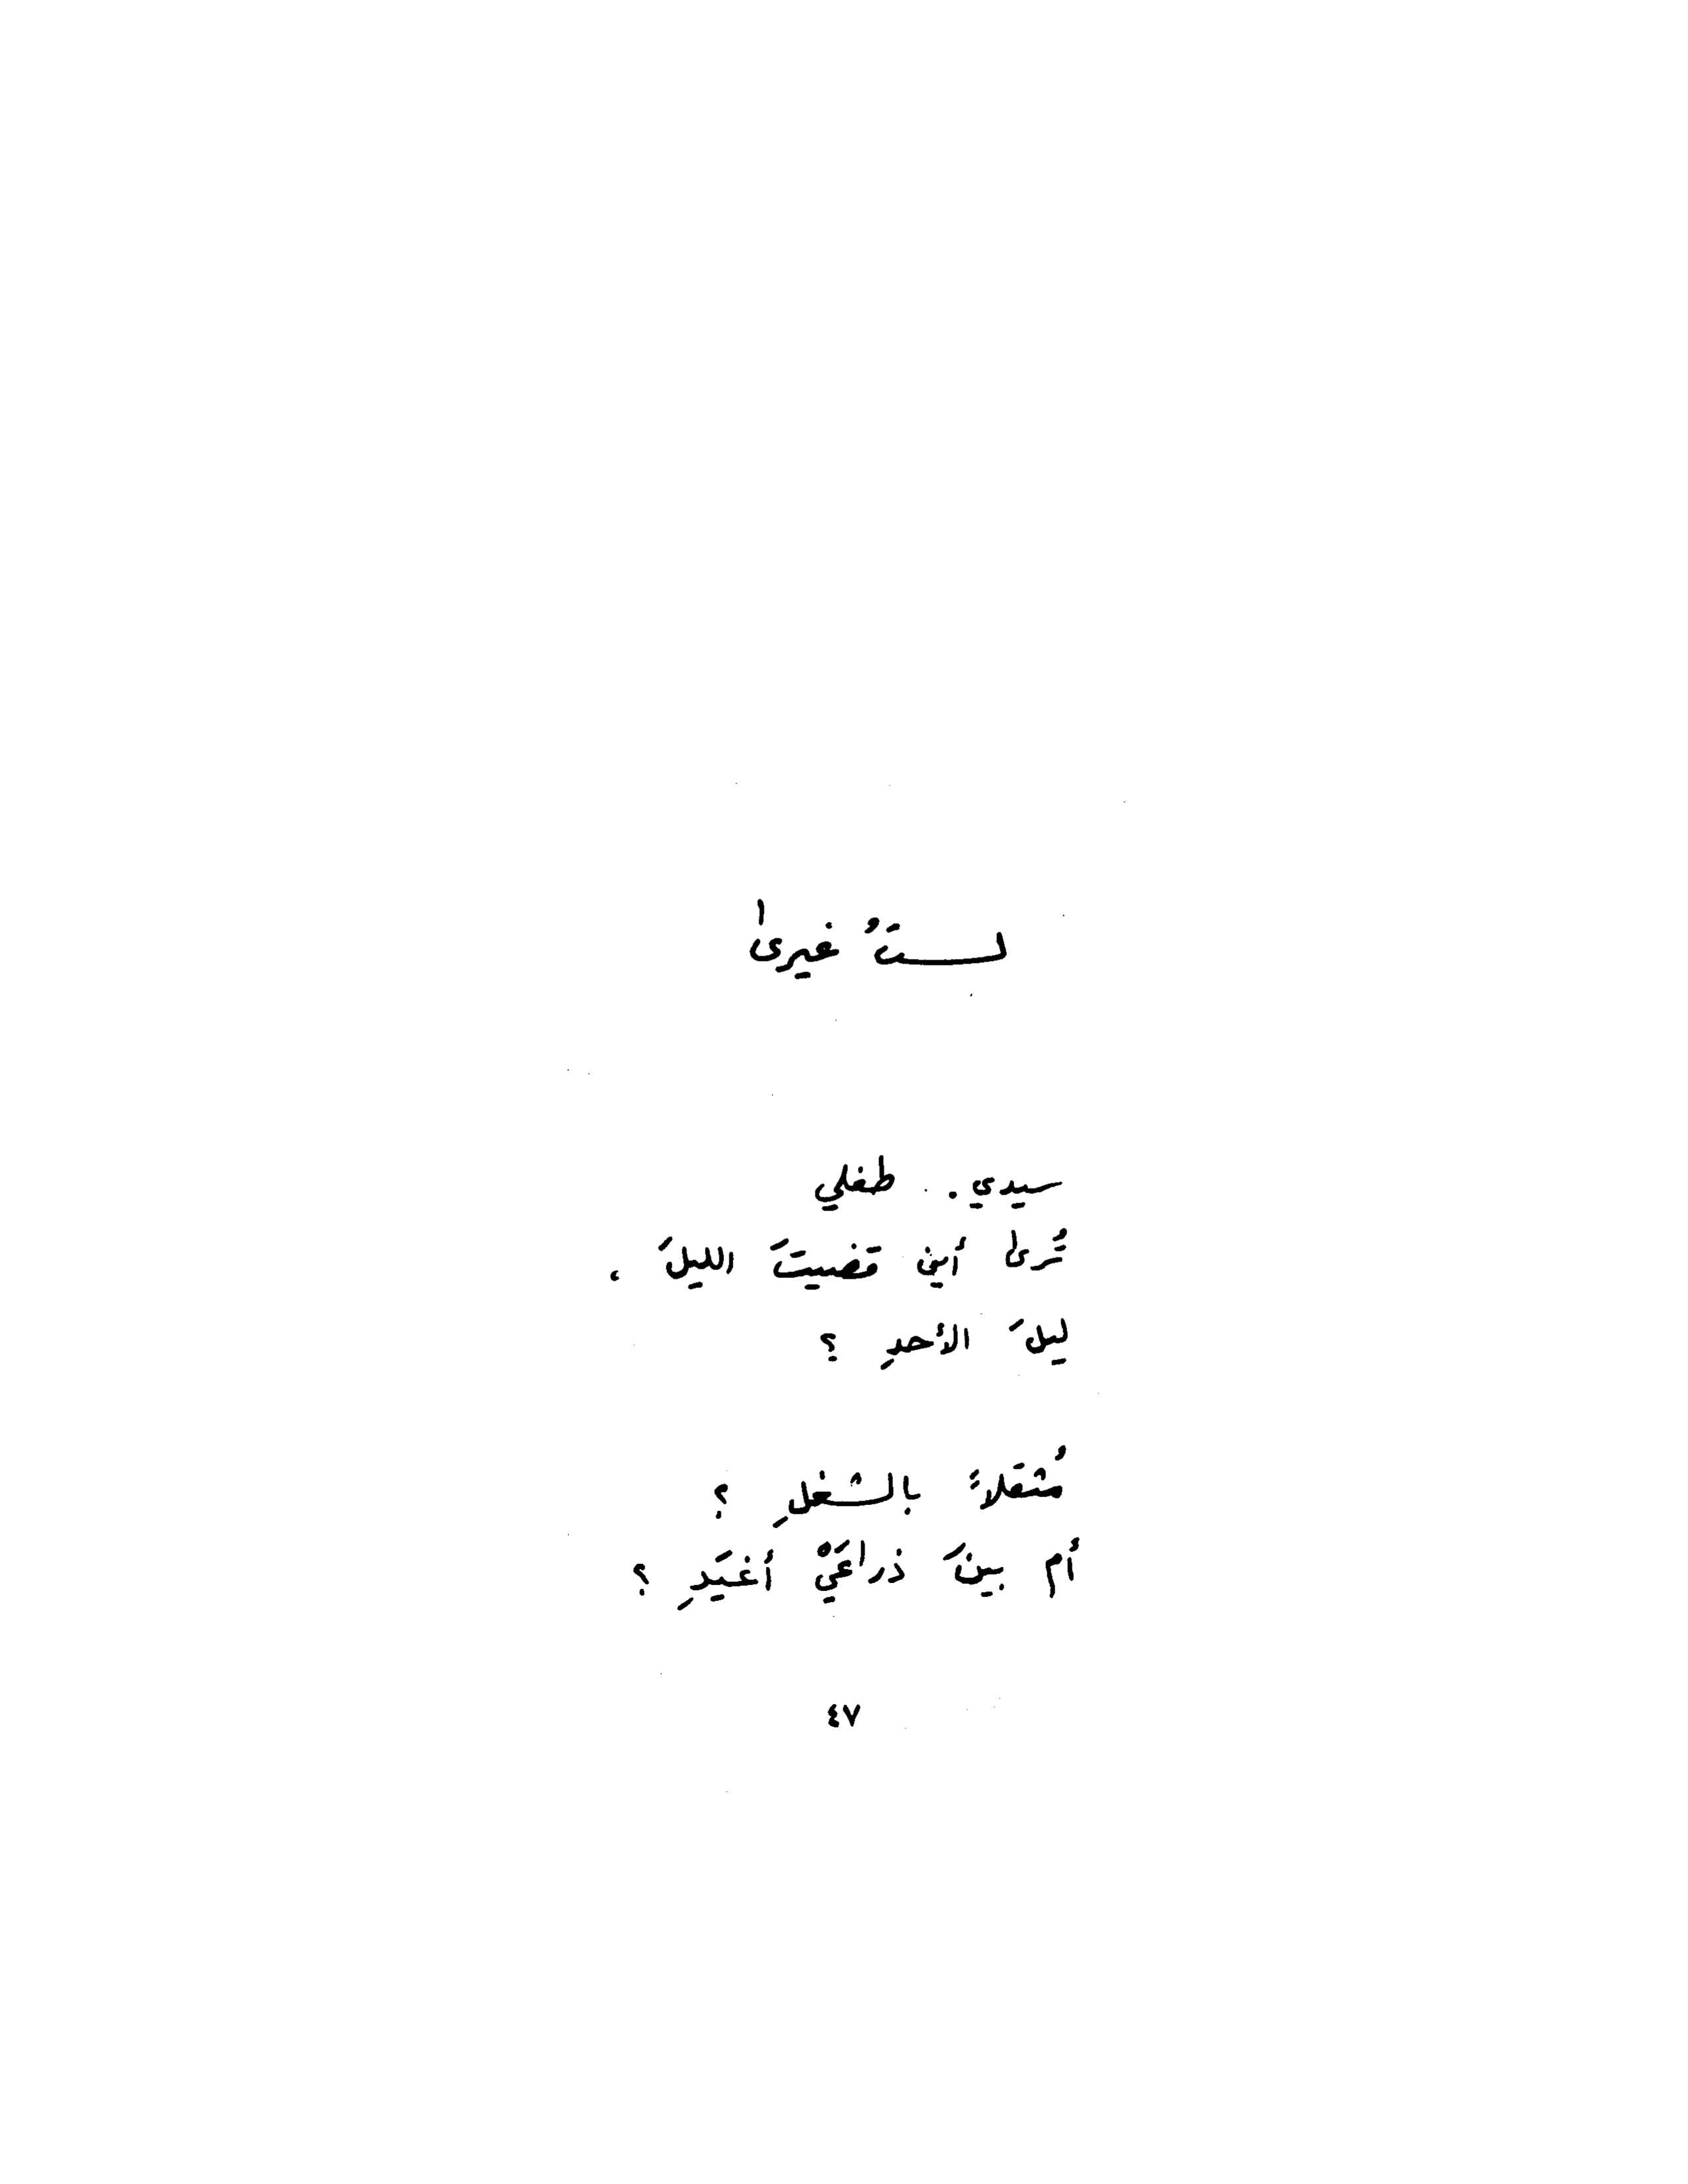 لستُ غيرىٰ
سيدي .. طفلي
تُرىٰ أين قضيتَ الليلَ ،
ليلَ الأحدِ ؟
مُثقلاً بالشغلِ ؟
أم بينَ ذراعَيْ أغيَدِ ؟
٤٧